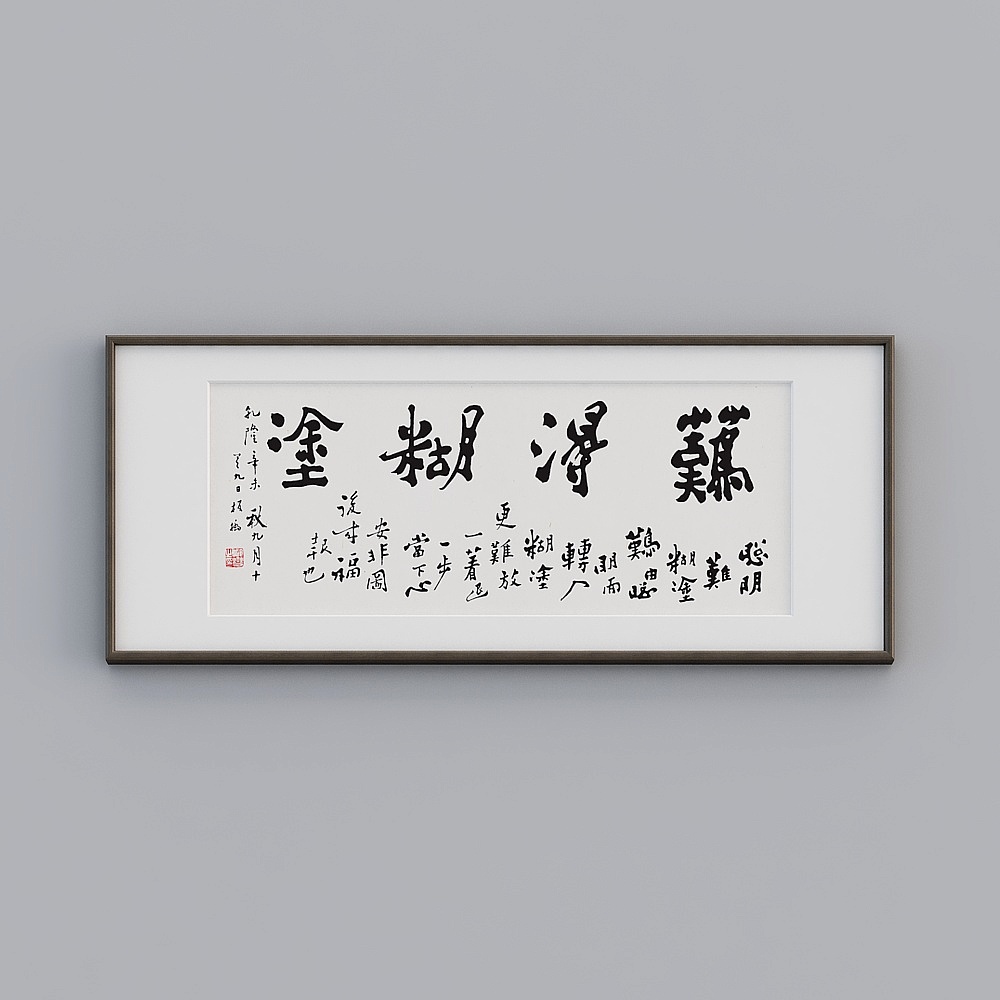 難得糊塗
聰明
難
糊塗
難由聰
明而
轉入
糊塗
更難放
一着退
一步
當下心
安非圖
後來福
報也
乾隆辛未秋九月十
九日板橋